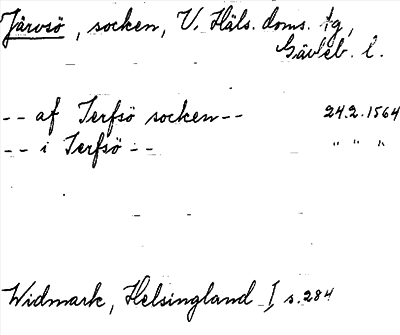 Järvsö, socken, V. Häls. doms. tg,
Gävleb. l.
-- af Jerfsö socken-- 24.2.1564
-- i Jerfsö -- " " "
Widmark, Helsingland I s. 284